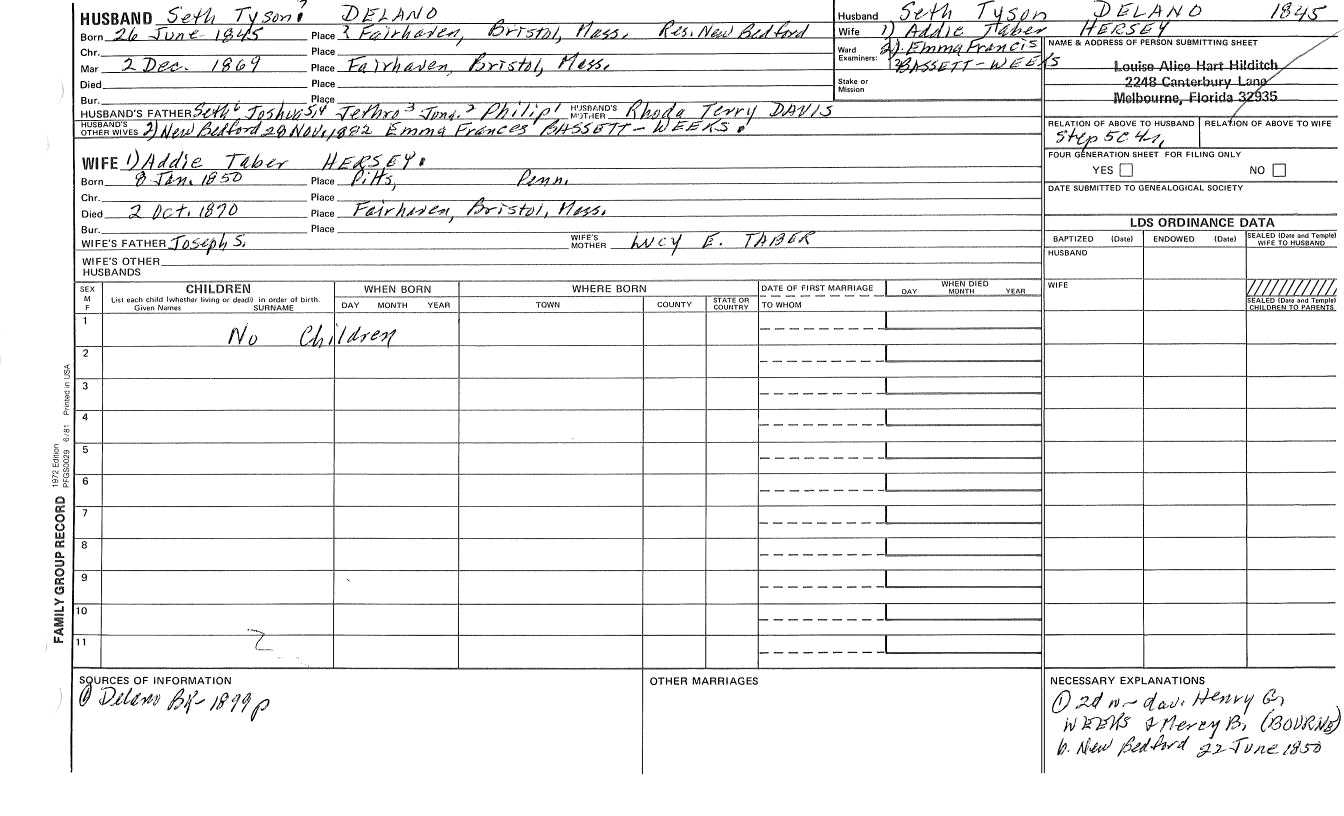 HUSBAND Seth Tyson 7 DELANO
Born 26 June 1845 Place ? Fairhaven, Bristol, Mass. Res. New Bedford
Chr. Place
Mar 2 Dec. 1869 Place Fairhaven, Bristol, Mass.
Died Place
Bur. Place
HUSBAND'S FATHER Seth 6 Joshua 5,4 Jethro 3 Jona. 2 Philip 1 HUSBAND'S MOTHER Rhoda Terry DAVIS
HUSBAND'S OTHER WIVES 2) New Bedford 28 Nov. 1882 Emma Frances BASSETT-WEEKS.
WIFE 1) Addie Taber HERSEY.
Born 8 Jan. 1850 Place Pitts, Penn.
Chr. Place
Died 2 Oct. 1870 Place Fairhaven, Bristol, Mass.
Bur. Place
WIFE'S FATHER Joseph S. WIFE'S MOTHER Lucy E. TABER
WIFE'S OTHER HUSBANDS
Husband Seth Tyson DELANO 1845
Wife 1) Addie Taber HERSEY
2) Emma Francis
BASSETT-WEEKS
Ward
Examiners:
Stake or
Mission
NAME & ADDRESS OF PERSON SUBMITTING SHEET
Louise Alice Hart Hilditch
2248 Canterbury Lane
Melbourne, Florida 32935
RELATION OF ABOVE TO HUSBAND RELATION OF ABOVE TO WIFE
Step 5C 4r,
FOUR GENERATION SHEET FOR FILING ONLY
YES NO
DATE SUBMITTED TO GENEALOGICAL SOCIETY
LDS ORDINANCE DATA
BAPTIZED (Date) ENDOWED (Date) SEALED (Date and Temple) WIFE TO HUSBAND
HUSBAND
WIFE
SEALED (Date and Temple) CHILDREN TO PARENTS
SEX M F
CHILDREN
List each child (whether living or dead) in order of birth.
Given Names SURNAME
WHEN BORN
DAY MONTH YEAR
WHERE BORN
TOWN COUNTY STATE OR COUNTRY
DATE OF FIRST MARRIAGE
TO WHOM
WHEN DIED
DAY MONTH YEAR
1 No Children
2
3
4
5
6
7
8
9
10
11
2
FAMILY GROUP RECORD 1972 Edition PFGS0029 6/81 Printed in USA
SOURCES OF INFORMATION
① Delano BK-1899 p
OTHER MARRIAGES
NECESSARY EXPLANATIONS
① 2d w- dau. Henry G.
WEEKS & Mercy B. (BOURNE)
b. New Bedford 22 June 1850